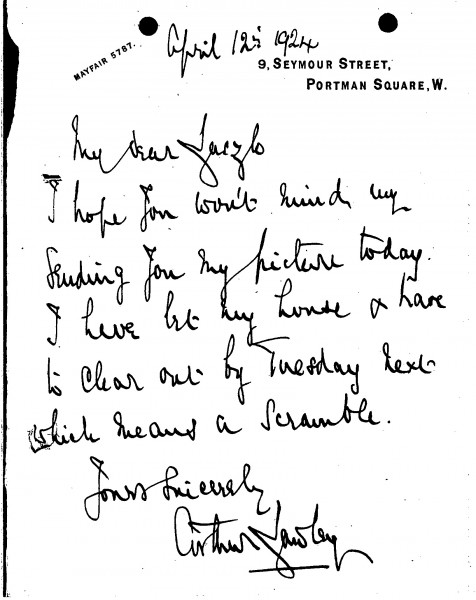 April 12th 1924
MAYFAIR 5787.
9, SEYMOUR STREET,
PORTMAN SQUARE, W.
My dear Laczlo
I hope you won't mind my
sending you my picture today.
I have let my house & have
to clear out by Tuesday next
which means a scramble.
Yours sincerely
Arthur Lawley